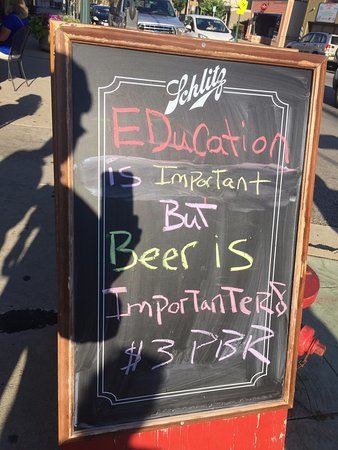 Schlitz
EDucation
IS Important
But
Beer is
ImporTanTers
$3 PBR